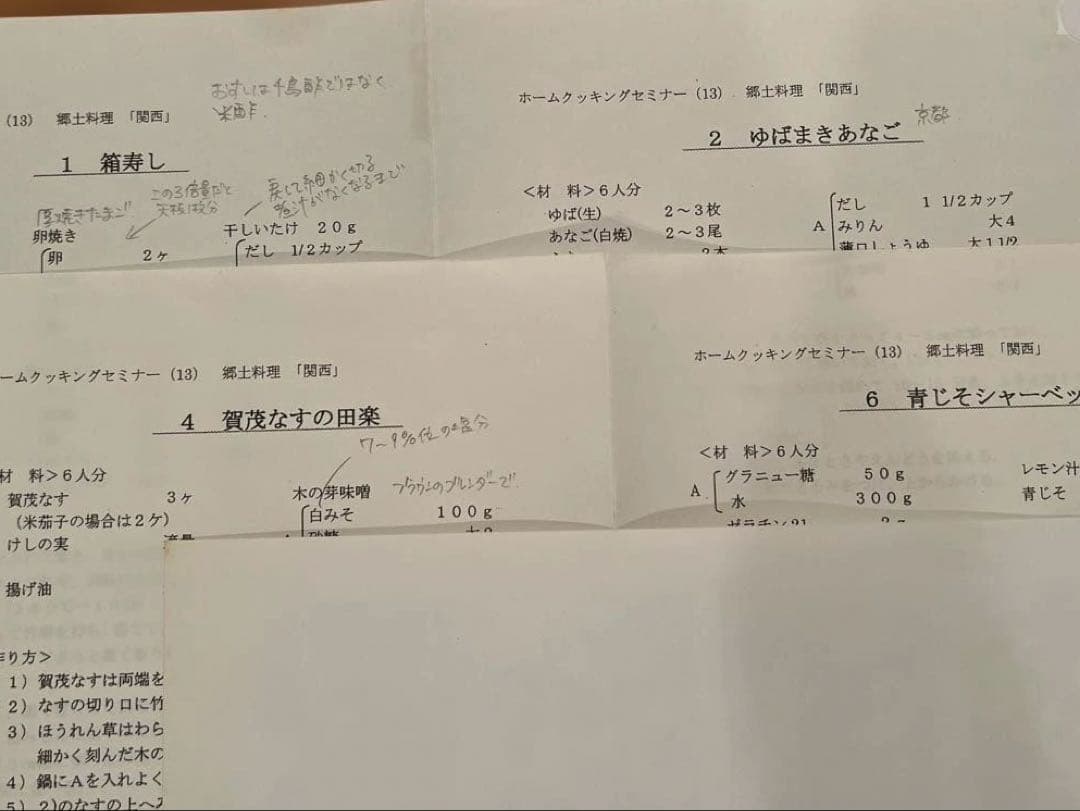 (13) 郷土料理 「関西」
おすしは千鳥酢ではなく
米酢.
1 箱寿し
この3倍量だと
天板1枚分
戻して細かく切る
煮汁がなくなるまで
厚焼きたまご
卵焼き
卵 2ヶ
干しいたけ 20g
だし 1/2カップ
ホームクッキングセミナー(13) 郷土料理 「関西」
2 ゆばまきあなご
京都
<材 料>6人分
ゆば(生) 2~3枚
あなご(白焼) 2~3尾
A
だし 1 1/2カップ
みりん 大4
薄口しょうゆ 大1 1/2
ホームクッキングセミナー(13) 郷土料理 「関西」
4 賀茂なすの田楽
7~9%位の塩分
材 料>6人分
賀茂なす 3ヶ
(米茄子の場合は2ケ)
けしの実 適量
揚げ油
木の芽味噌
ブラウンのブレンダーで
白みそ 100g
砂糖
作り方>
1) 賀茂なすは両端を
2) なすの切り口に竹
3) ほうれん草はわら
細かく刻んだ木の
4) 鍋にAを入れよく
5) 2)のなすの上へ
ホームクッキングセミナー(13) 郷土料理 「関西」
6 青じそシャーベッ
<材 料>6人分
A
グラニュー糖 50g
水 300g
ゼラチン21
レモン汁
青じそ